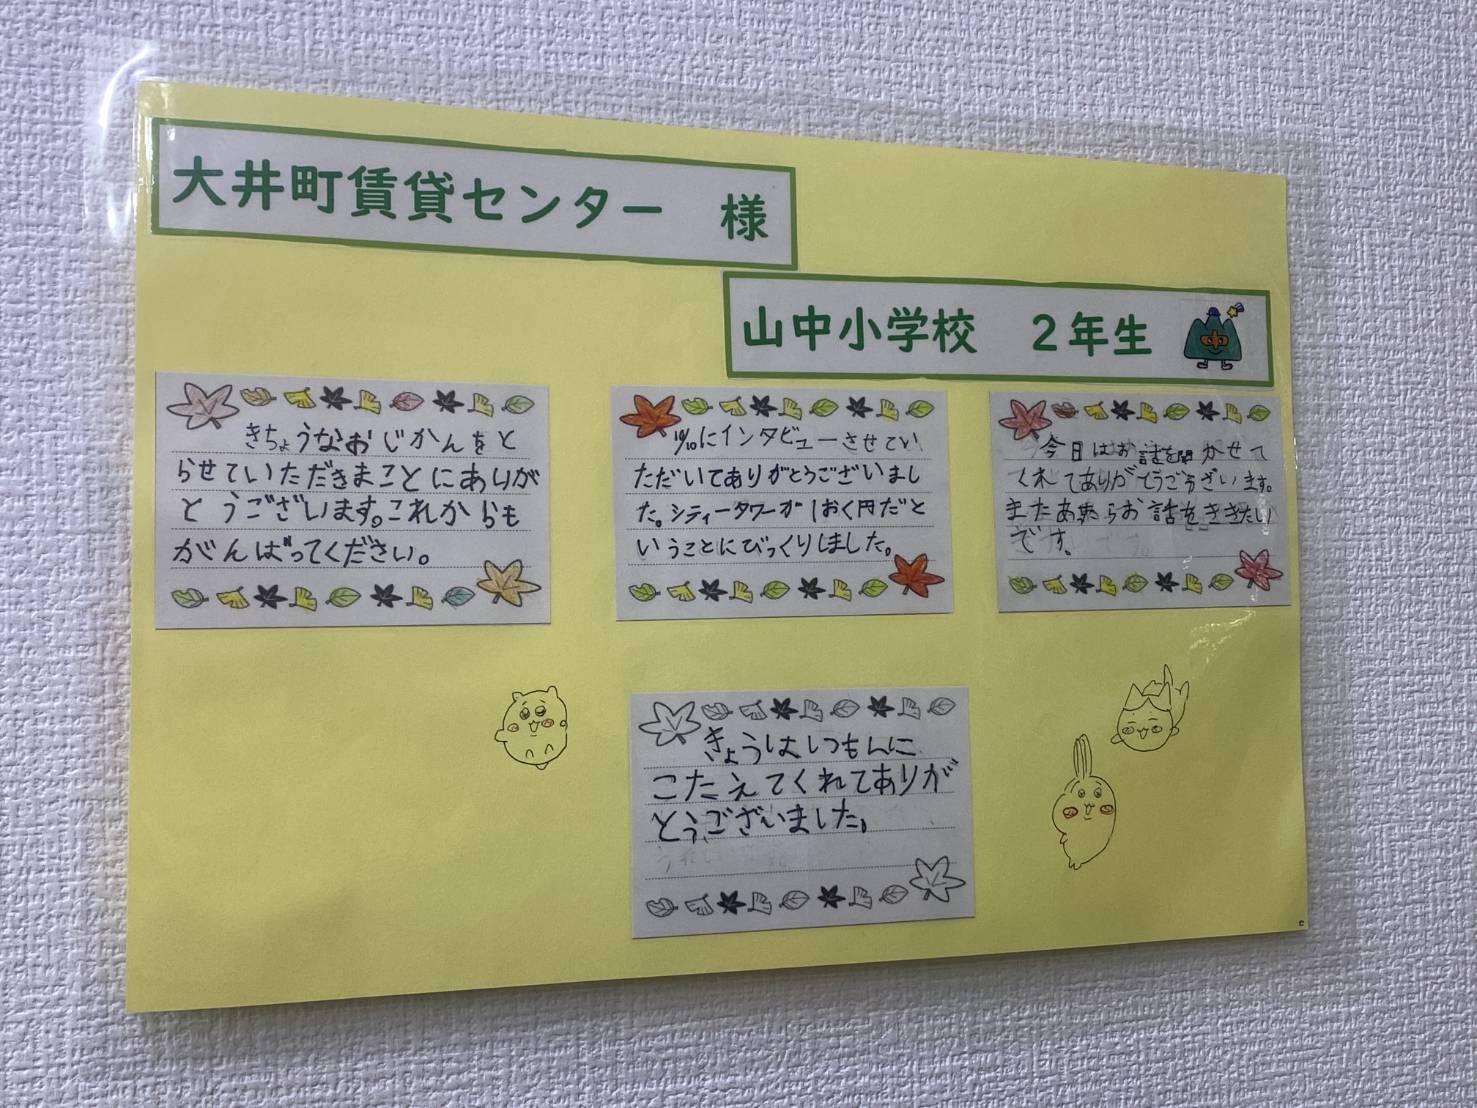 大井町賃貸センター 様
山中小学校 2年生
きちょうなおじかんをと
らせていただきまことにありが
とうございます。これからも
がんばってください。
10/10にインタビューさせてい
ただいてありがとうございまし
た。シティータワーが1おく円だと
いうことにびっくりしました。
今日はお話を聞かせて
くれてありがとうございます。
またあったらお話をききたい
です。
きょうはしつもんに
こたえてくれてありが
とうございました。